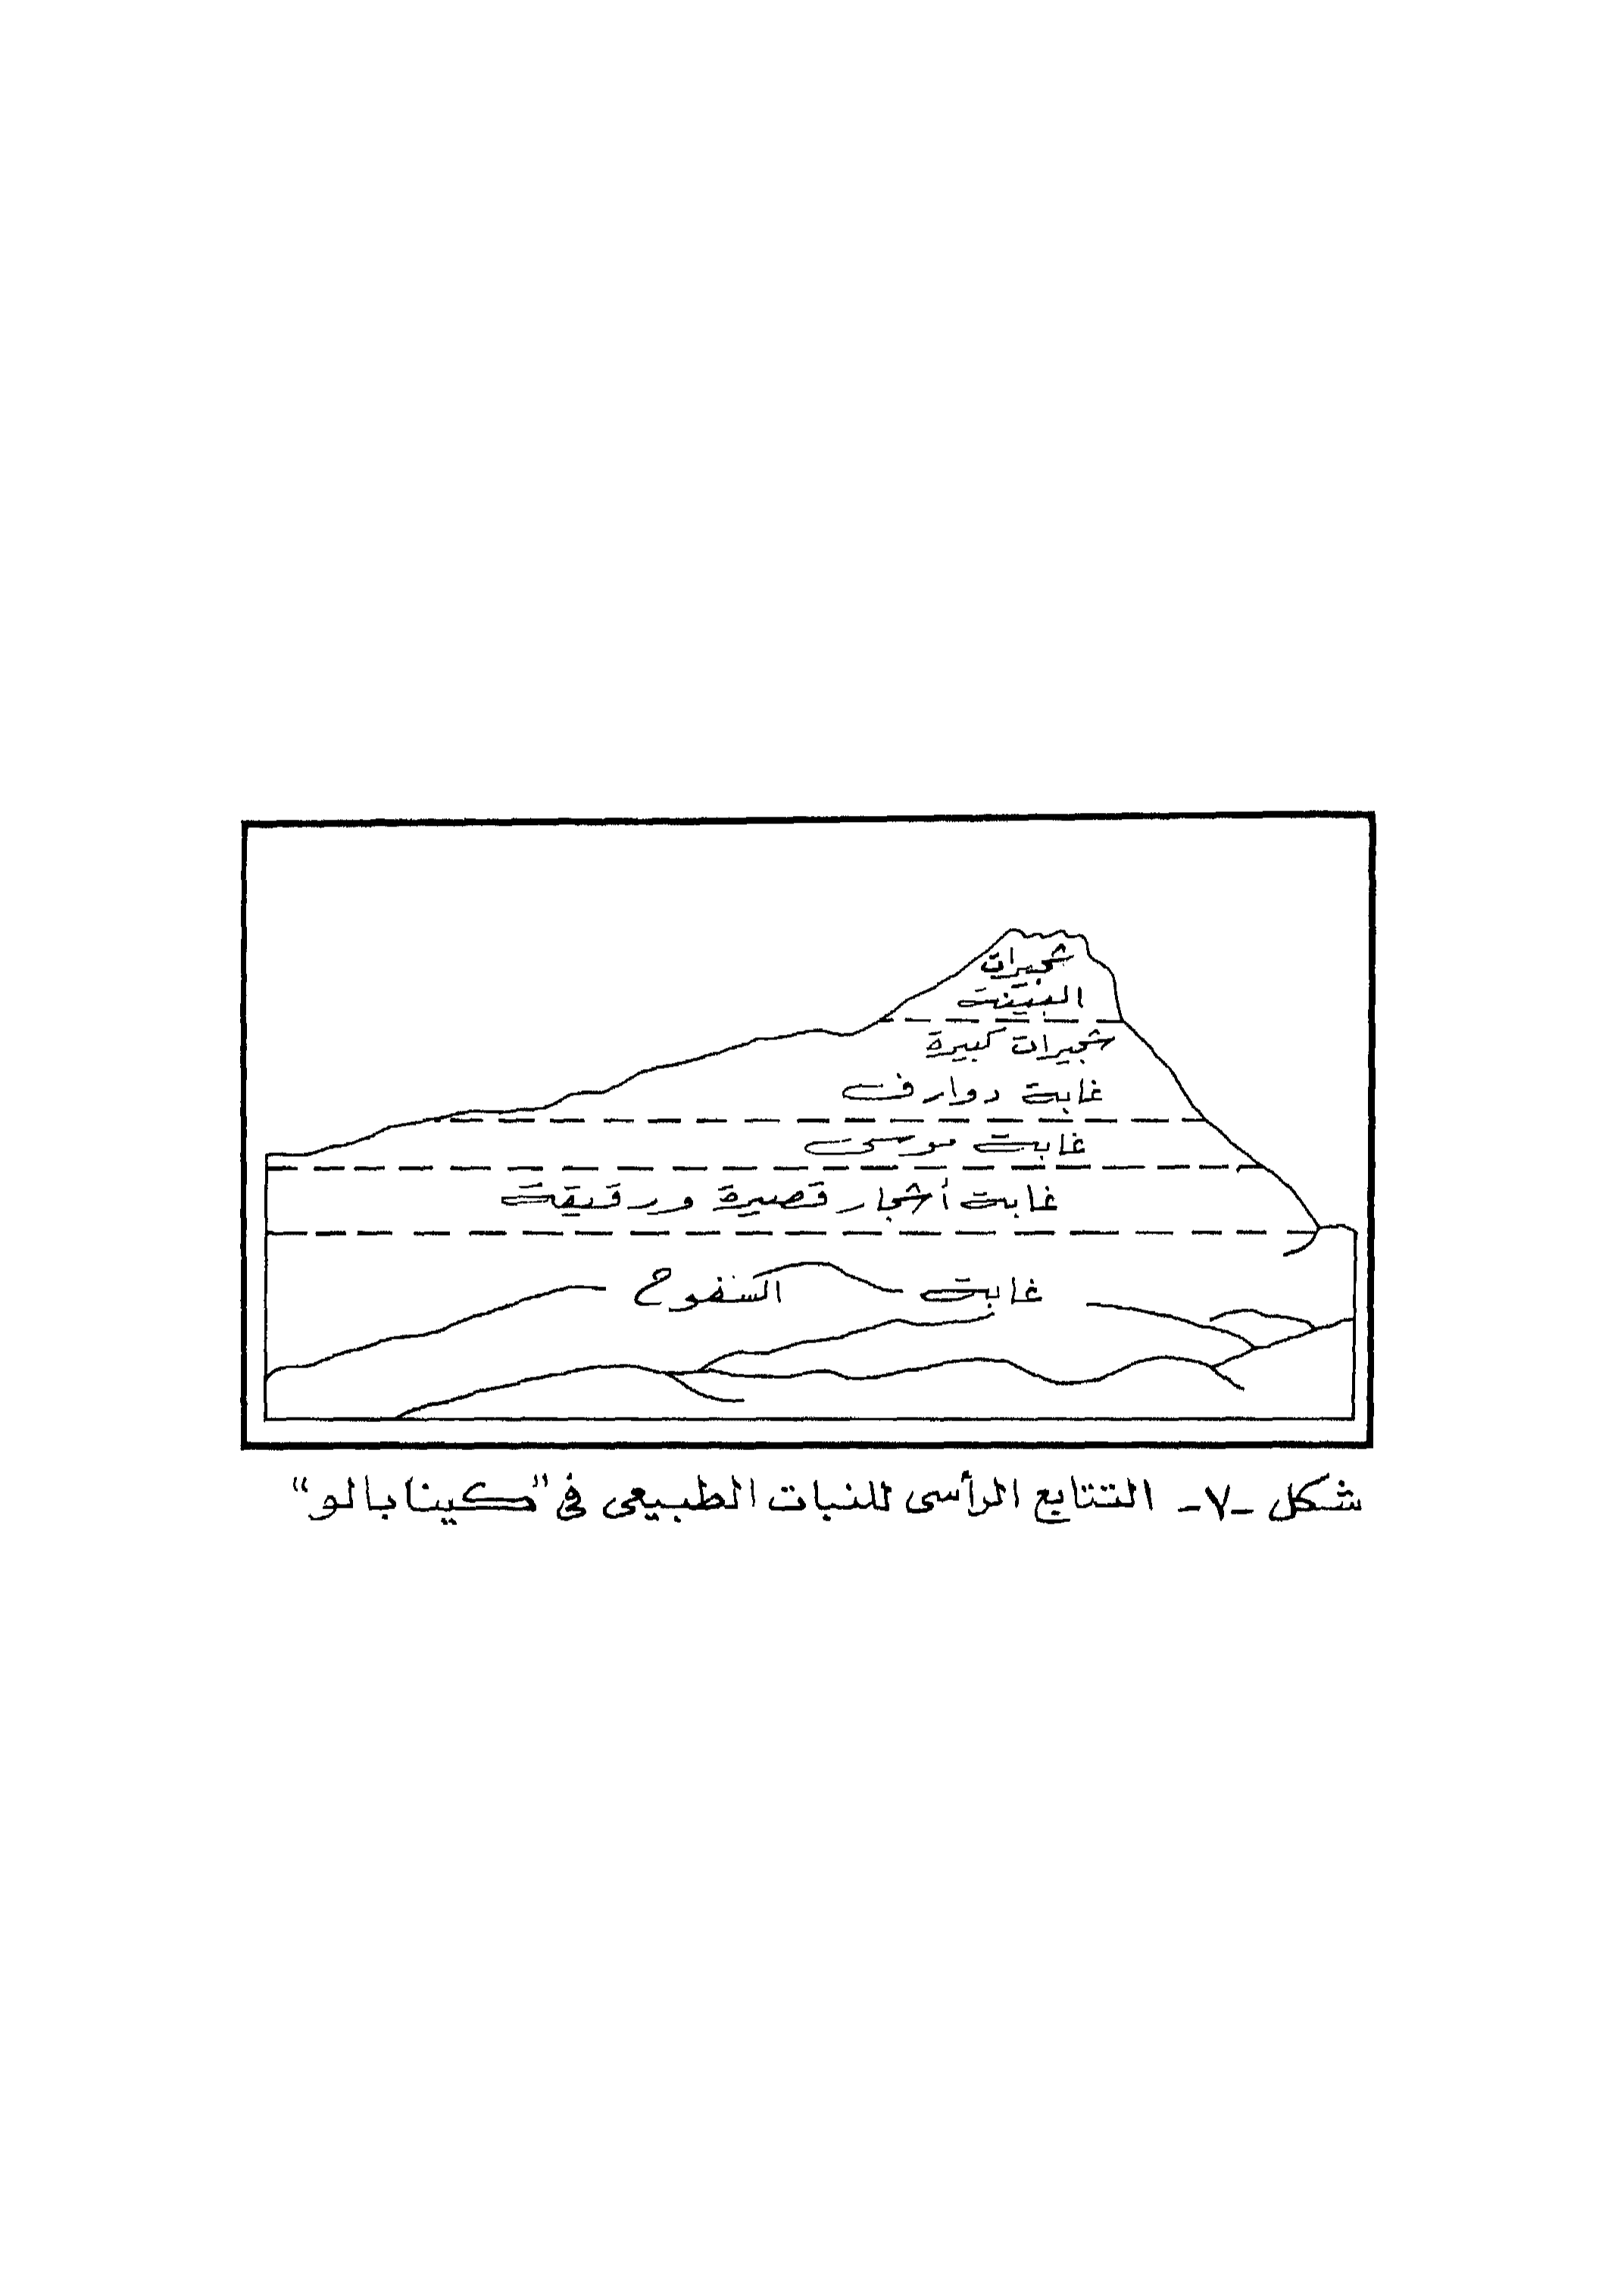 شجيرات
البينت
شجيرات كبيرة
غابة دوارف
غابة موسى
غابة أشجار قصيرة ورقيقة
غابة السفوح
شكل -٧- التتابع الرأسى للنبات الطبيعى فى "كينابالو"